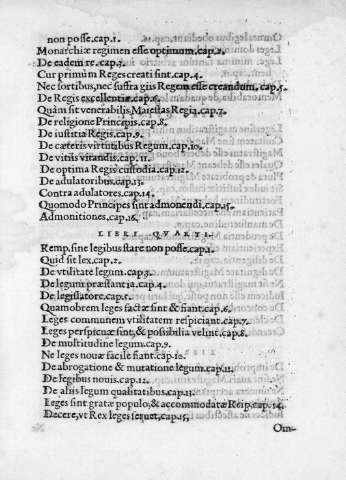 non posse.cap.1.
Monarchiæ regimen esse optimum.cap.2.
De eadem re.cap.3.
Cur primùm Reges creati sint.cap.4.
Nec sortibus, nec suffragiis Regem esse creandum.cap.5.
De Regis excellentia.cap.6.
Quàm sit venerabilis Maiestas Regia.cap.7.
De religione Principis.cap.8.
De iustitia Regis.cap.9.
De cæteris virtutibus Regum.cap.10.
De vitiis vitandis.cap.11.
De optima Regis custodia.cap.12.
De adulatoribus.cap.13.
Contra adulatores.cap.14.
Quomodo Principes sint admonendi.cap.15.
Admonitiones.cap.16.
LIBRI QVARTI.
Remp.sine legibus stare non posse.cap.1.
Quid sit lex.cap.2.
De vtilitate legum.cap.3.
De legum præstantia.cap.4.
De legislatore.cap.5.
Quamobrem leges factæ sint & fiant.cap.6.
Leges communem vtilitatem respiciant.cap.7.
Leges perspicuæ sint, & possibilia velint.cap.8.
De multitudine legum.cap.9.
Ne leges nouæ facile fiant.cap.10.
De abrogatione & mutatione legum.cap.11.
De legibus nouis.cap.12.
De aliis legum qualitatibus.cap.13.
Leges sint gratæ populo, & accommodatæ Reip.cap.14.
Decere, vt Rex leges seruet.cap.15.
Om-